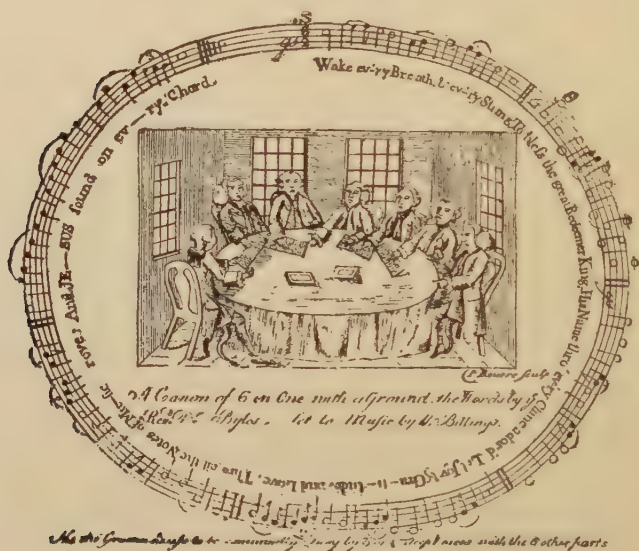 Wake ev'ry Breath, & ev'ry String To bless the great Redeemer King, His Name thro' ev'ry Clime ador'd Let Joy & Gra—ti—tude, and Love, Thro' all the Notes of Mu—sic rove; And JE—SUS found on ev—ry Chord.
P. Revere Sculp
A Canon of 6 in One with a Ground, the Words by ye
Revd. Dr. Byles, Set to Music by W. Billings.
the Ground to be sung by Deep Voices with the 6 other parts